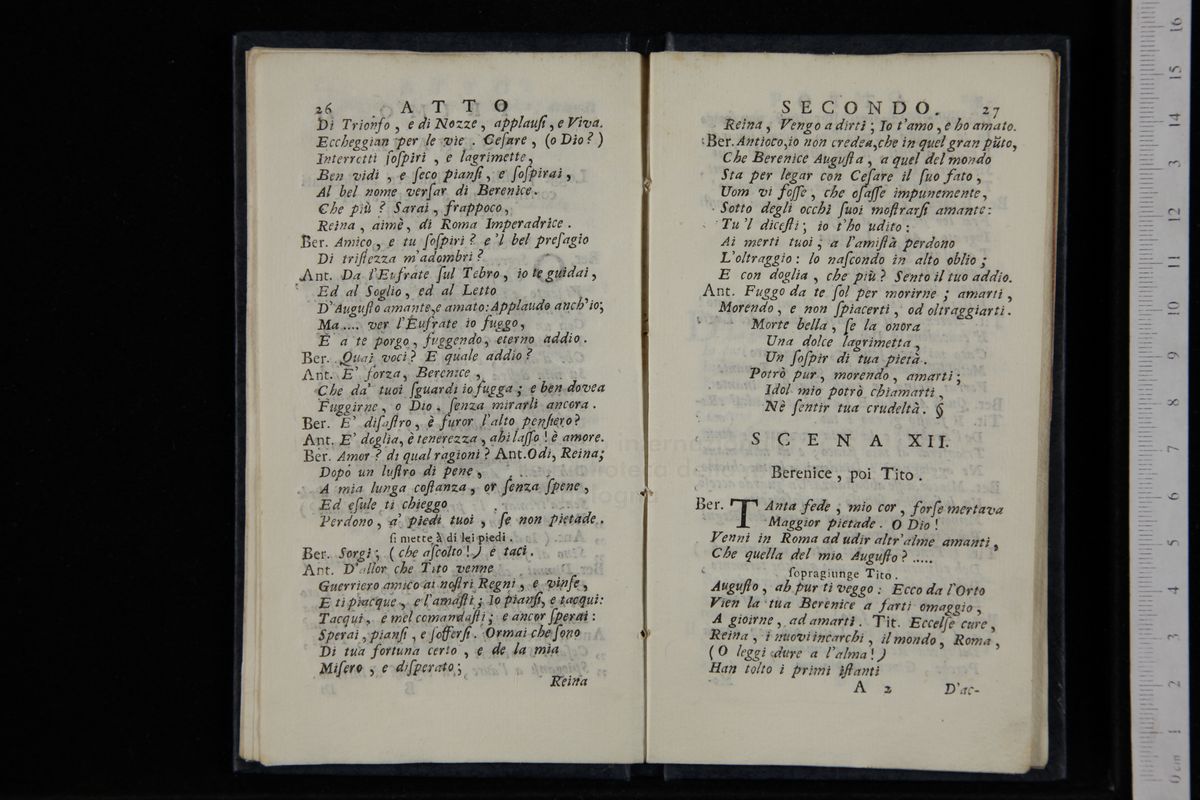 26 ATTO
Di Trionfo, e di Nozze, applauſi, e Viva.
Eccheggian per le vie. Ceſare, (o Dio?)
Interrotti ſoſpiri, e lagrimette,
Ben vidi, e ſeco pianſi, e ſoſpirai,
Al bel nome verſar di Berenice.
Che più? Sarai, frappoco,
Reina, aimè, di Roma Imperadrice.
Ber. Amico, e tu ſoſpiri? e 'l bel preſagio
Di triſtezza m'adombri?
Ant. Da l'Eufrate ſul Tebro, io te guidai,
Ed al Soglio, ed al Letto
D'Auguſto amante, e amato: Applaudo anch'io;
Ma.... ver l'Eufrate io fuggo,
E a te porgo, fuggendo, eterno addio.
Ber. Quai voci? E quale addio?
Ant. E' forza, Berenice,
Che da' tuoi ſguardi io fugga; e ben dovea
Fuggirne, o Dio, ſenza mirarli ancora.
Ber. E' diſaſtro, è furor l'alto penſiero?
Ant. E' doglia, è tenerezza, ahi laſſo! è amore.
Ber. Amor? di qual ragioni? Ant. Odi, Reina;
Dopo un luſtro di pene,
A mia lunga coſtanza, or ſenza ſpene,
Ed eſule ti chieggo
Perdono, a' piedi tuoi, ſe non pietade.
ſi mette à di lei piedi.
Ber. Sorgi; (che aſcolto!) e taci.
Ant. D'allor che Tito venne
Guerriero amico ai noſtri Regni, e vinſe,
E ti piacque, e l'amaſti; Io pianſi, e tacqui:
Tacqui, e mel comandaſti; e ancor ſperai:
Sperai, pianſi, e ſofferſi. Ormai che ſono
Di tua fortuna certo, e de la mia
Miſero, e diſperato;
Reina
SECONDO. 27
Reina, Vengo a dirti; Io t'amo, e ho amato.
Ber. Antioco, io non credea, che in quel gran pũto,
Che Berenice Auguſta, a quel del mondo
Sta per legar con Ceſare il ſuo fato,
Uom vi foſſe, che oſaſſe impunemente,
Sotto degli occhi ſuoi moſtrarſi amante:
Tu 'l diceſti; io t'ho udito:
Ai merti tuoi; a l'amiſtà perdono
L'oltraggio: lo naſcondo in alto oblio;
E con doglia, che più? Sento il tuo addio.
Ant. Fuggo da te ſol per morirne; amarti,
Morendo, e non ſpiacerti, od oltraggiarti.
Morte bella, ſe la onora
Una dolce lagrimetta,
Un ſoſpir di tua pietà.
Potrò pur, morendo, amarti;
Idol mio potrò chiamarti,
Nè ſentir tua crudeltà. §
SCENA XII.
Berenice, poi Tito.
Ber. TAnta fede, mio cor, forſe mertava
Maggior pietade. O Dio!
Venni in Roma ad udir altr'alme amanti,
Che quella del mio Auguſto? .....
ſopragiunge Tito.
Auguſto, ah pur ti veggo: Ecco da l'Orto
Vien la tua Berenice a farti omaggio,
A gioirne, ad amarti. Tit. Eccelſe cure,
Reina, i nuovi incarchi, il mondo, Roma,
(O leggi dure a l'alma!)
Han tolto i primi iſtanti
A 2 D'ac-